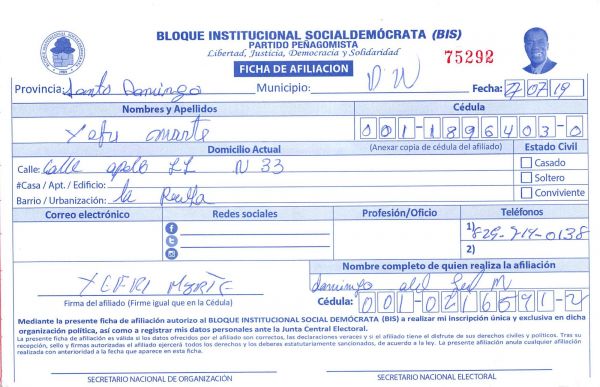 BLOQUE INSTITUCIONAL SOCIALDEMÓCRATA (BIS)
PARTIDO PEÑAGOMISTA
Libertad, Justicia, Democracia y Solidaridad
75292
FICHA DE AFILIACION
Provincia: Santo Domingo Municipio: D N Fecha: 7/07/19
Nombres y Apellidos Cédula
Yefri 001-1896403-0
Domicilio Actual (Anexar copia de cédula del afiliado) Estado Civil
Calle: Calle apolo LL N 33 Casado
#Casa / Apt. / Edificio: Soltero
Barrio / Urbanización: la Conviviente
Correo electrónico Redes sociales Profesión/Oficio Teléfonos
1) 829-914-0138
2)
Nombre completo de quien realiza la afiliación
domingo M
Firma del afiliado (Firme igual que en la Cédula) Cédula: 001-0216591-2
Mediante la presente ficha de afiliación autorizo al BLOQUE INSTITUCIONAL SOCIAL DEMÓCRATA (BIS) a realizar mi inscripción única y exclusiva en dicha
organización política, así como a registrar mis datos personales ante la Junta Central Electoral.
La presente ficha de afiliación es válida si los datos ofrecidos por el afiliado son correctos, las declaraciones veraces y si el afiliado tiene el disfrute de sus derechos civiles y políticos. Tras su
recepción, sello y firmas autorizadas el afiliado ejercerá todos los derechos y los deberes estatutariamente sancionados, de acuerdo a la ley. La presente afiliación anula cualquier afiliación
realizada con anterioridad a la fecha que aparece en esta ficha.
SECRETARIO NACIONAL DE ORGANIZACIÓN SECRETARIO NACIONAL ELECTORAL